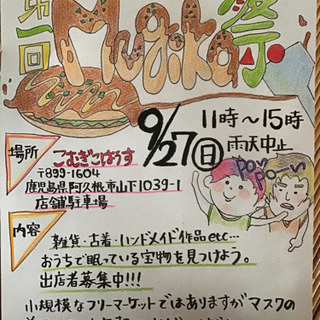 第一回
Mugiko祭
9/27(日)
11時～15時
雨天中止
場所
こむぎこはうす
〒899-1604
鹿児島県阿久根市山下1039-1
店舗駐車場
内容
雑貨・古着・ハンドメイド作品etc…
おうちで眠っている宝物を見つけよう。
出店者募集中!!!
小規模なフリーマーケットではありますがマスクの